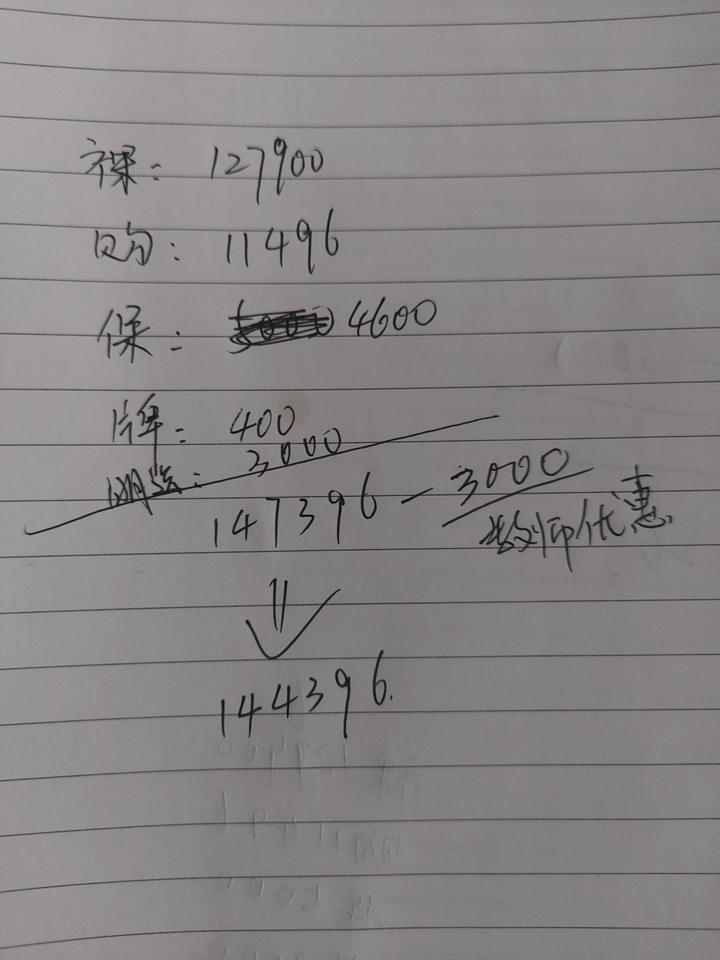 裸: 127900
购: 11496
保: 4600
牌: 400
3000
147396 - 3000
教师优惠
144396.